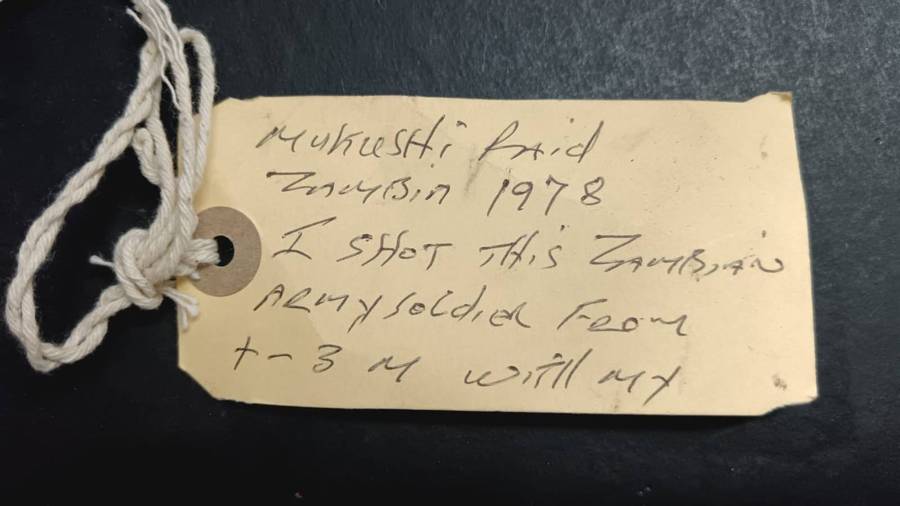 MUKUSHi RAid
ZAMBiA 1978
I SHOT THiS ZAMBiAN
ARMY SOldiER FROM
+- 3 M WiTH MY